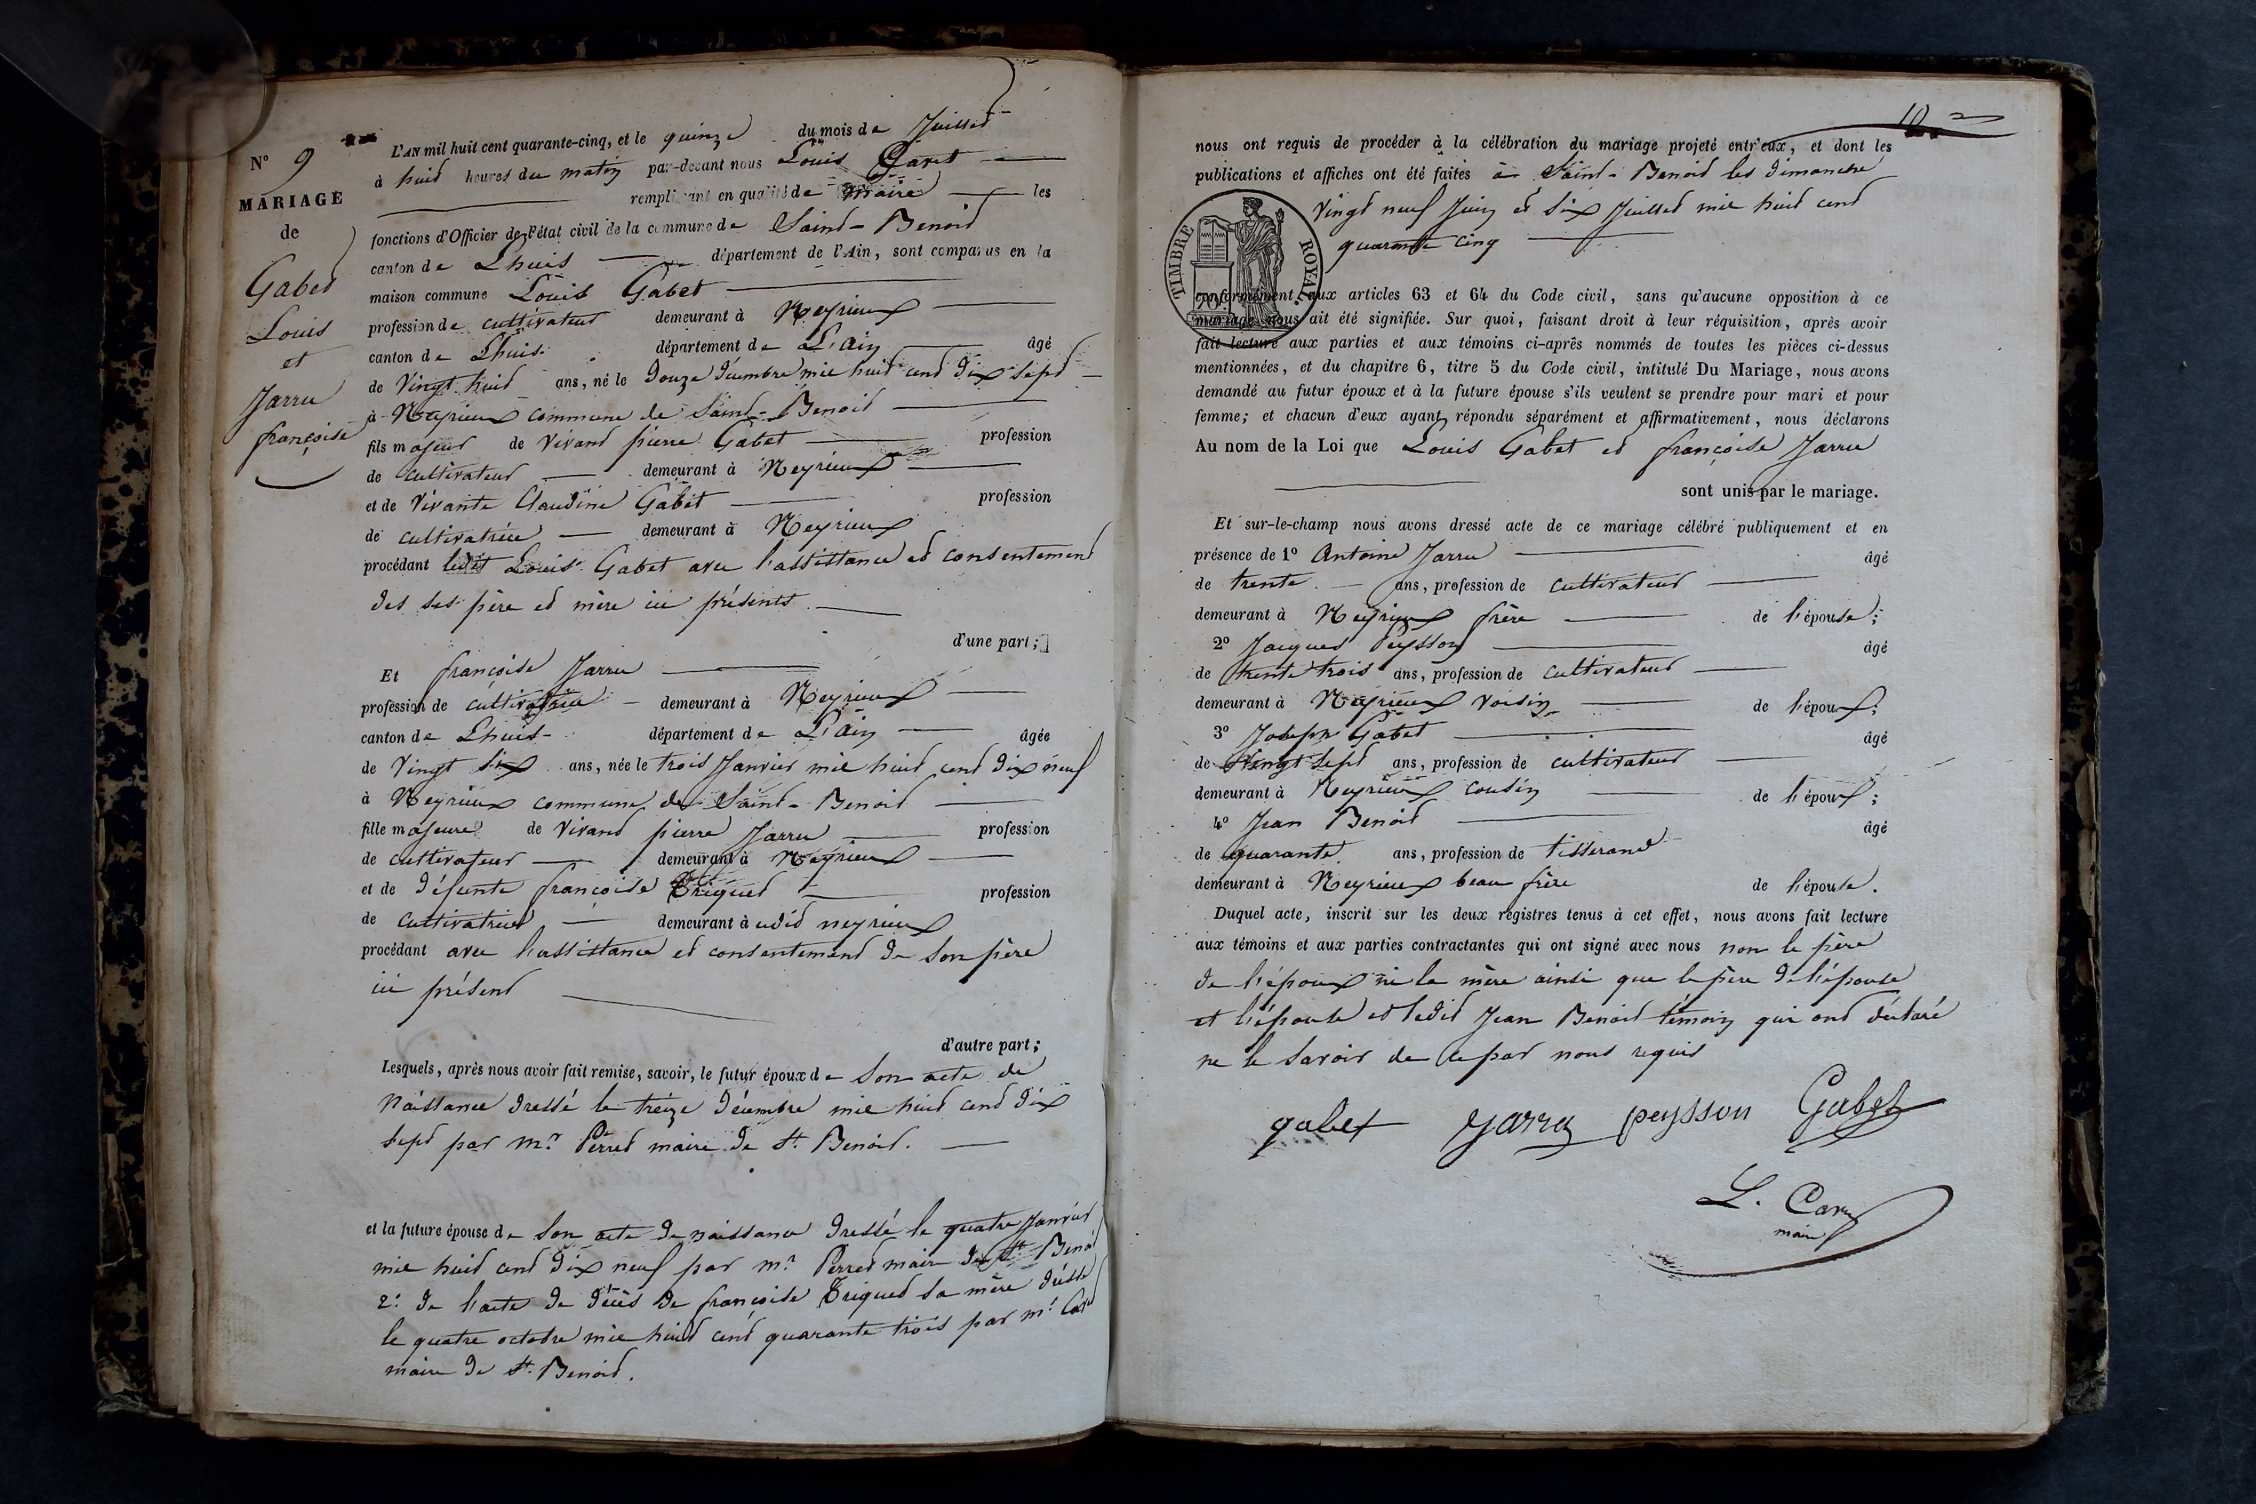 N° 9
MARIAGE
de
Gabet
Louis
et
Jarru
françoise
L'AN mil huit cent quarante-cinq, et le quinze du mois de Juillet
à huit heures du matin par-devant nous Louis Caret
remplissant en qualité de maire les
fonctions d'Officier de l'état civil de la commune de Saint-Benoit
canton de Lhuis département de l'Ain, sont comparus en la
maison commune Louis Gabet
profession de cultivateur demeurant à Neyrieux
canton de Lhuis département de L'ain âgé
de Vingt huit ans, né le douze décembre mil huit cent dix sept
à Neyrieux commune de Saint-Benoit
fils majeur de vivant pierre Gabet profession
de cultivateur demeurant à Neyrieux
et de vivante Claudine Gabet profession
de cultivatrice demeurant à Neyrieux
procédant ledit Louis Gabet avec l'assistance et consentement
des ses père et mère ici présents
d'une part;
Et françoise Jarru
profession de cultivatrice demeurant à Neyrieux
canton de Lhuis département de L'ain âgée
de Vingt six ans, née le trois Janvier mil huit cent dix neuf
à Neyrieux commune de Saint-Benoit
fille majeure de vivant pierre Jarru profession
de cultivateur demeurant à Neyrieux
et de défunte françoise Triquet profession
de cultivatrice demeurant à udid neyrieux
procédant avec l'assistance et consentement de son père
ici présent
d'autre part;
Lesquels, après nous avoir fait remise, savoir, le futur époux de son acte de
naissance dressé le treize décembre mil huit cent dix
sept par mr. Perret maire de St. Benoit.
et la future épouse de son acte de naissance dressé le quatre Janvier
mil huit cent dix neuf par mr. Perret maire de St Benoi
2: de l'acte de décès de françoise Triquet sa mère dressé
le quatre octobre mil huit cent quarante trois par mr. Caret
maire de St. Benoit.
10
nous ont requis de procéder à la célébration du mariage projeté entr'eux, et dont les
publications et affiches ont été faites à Saint-Benoit les dimanche
vingt neuf Juin et six Juillet mil huit cent
quarante cinq
TIMBRE ROYAL
conformément aux articles 63 et 64 du Code civil, sans qu'aucune opposition à ce
mariage nous ait été signifiée. Sur quoi, faisant droit à leur réquisition, après avoir
fait lecture aux parties et aux témoins ci-après nommés de toutes les pièces ci-dessus
mentionnées, et du chapitre 6, titre 5 du Code civil, intitulé Du Mariage, nous avons
demandé au futur époux et à la future épouse s'ils veulent se prendre pour mari et pour
femme; et chacun d'eux ayant répondu séparément et affirmativement, nous déclarons
Au nom de la Loi que Louis Gabet et françoise Jarru
sont unis par le mariage.
Et sur-le-champ nous avons dressé acte de ce mariage célébré publiquement et en
présence de 1° Antoine Jarru âgé
de trente ans, profession de cultivateur
demeurant à Neyrieux frère de l'épouse;
2° Jacques Peysson âgé
de trente trois ans, profession de cultivateur
demeurant à Neyrieux voisin de l'époux;
3° Joseph Gabet âgé
de Vingt sept ans, profession de cultivateur
demeurant à Neyrieux cousin de l'époux;
4° Jean Benoit âgé
de quarante ans, profession de tisserand
demeurant à Neyrieux beau frère de l'épouse.
Duquel acte, inscrit sur les deux registres tenus à cet effet, nous avons fait lecture
aux témoins et aux parties contractantes qui ont signé avec nous non le père
de l'époux ni la mère ainsi que le père de l'épouse
et l'épouse et ledit Jean Benoit témoin qui ont déclaré
ne le savoir de ce par nous requis
gabet Jarru peysson Gabet
L. Caret
maire